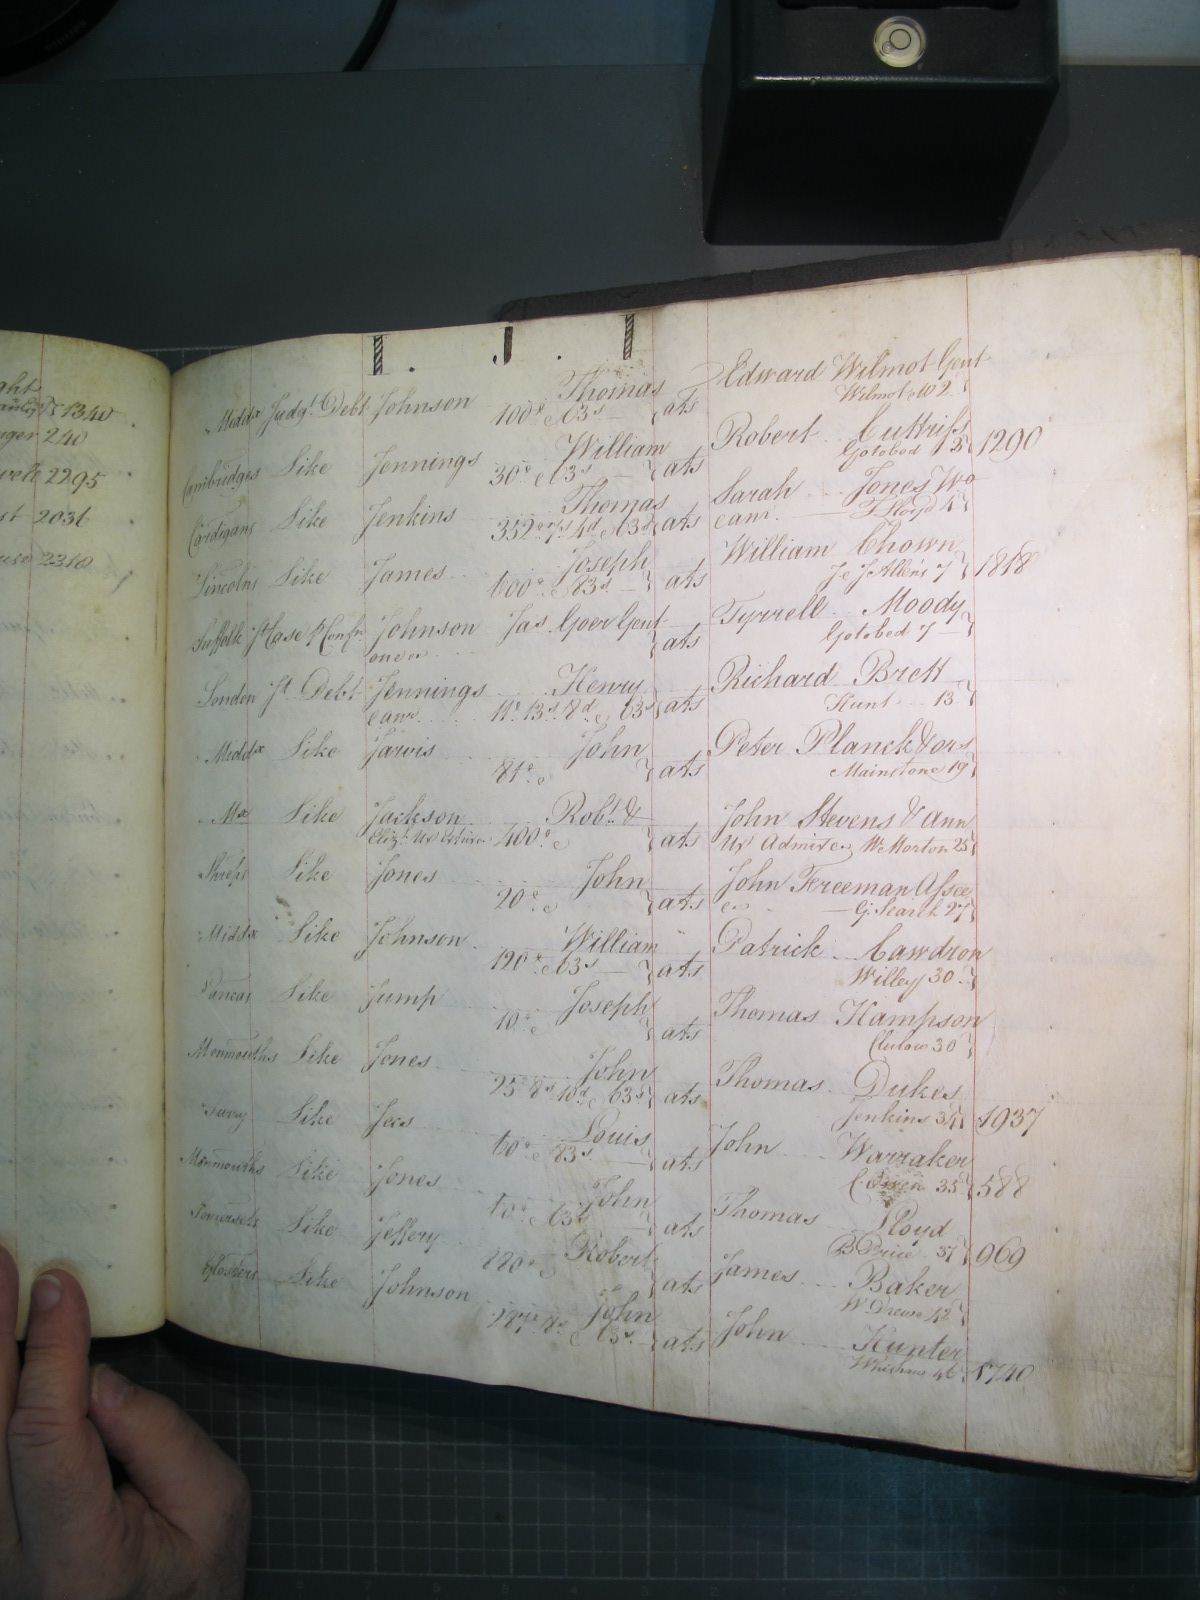 1340
240
2295
2031
2310
I. J. I
Middx Judgt. Debt Johnson Thomas ats Edward Wilmot Gent
100£ & 63s Wilmot & W 2
Cambridges Like Jennings William ats Robert Cuttriss
30£ & 63s Gotobed 1290
Cardigans Like Jenkins Thomas ats Sarah Jones Wo
352£ 7s 4d & 63s ats eanr T. Lloyd 4
Lincolns Like James Joseph ats William Chown
600£ & 83s Jc J Allens 7 1818
Suffolk Johnson Jas. Goer Gent ats Tyrrell Moody
one &c Gotobed 7
London Jt. Debt Jennings Henry ats Richard Brett
eanr 11£ 13s 8d & 63s Hunt 13
Middx Like Jarvis John ats Peter Planck & ors
81£ & Mainstone 19
Mx Like Jackson Robt. & ats John Stevens & Ann
Elizth. Ux 400£ & Ux Admix &c W Morton 25
Shrops Like Jones John ats John Freeman Assee
20£ & &c G. Search 27
Middx Like Johnson William ats Patrick Cawdron
190£ & 63s Willey 30
Like Jump Joseph ats Thomas Hampson
10£ & Clulow 30
Monmouths Like Jones John ats Thomas Dukes
25£ 8s 10d & 63s Jenkins 34 1937
Surry Like Jees Louis ats John Warraker
60£ & 83s 35 588
Monmouths Like Jones John ats Thomas Lloyd
60£ & 63s B Price 37 969
Somersets Like Jeffery Robert ats James Baker
220£ & W Drewe 42
Glosters Like Johnson John ats John Hunter
& 63s 46 1740